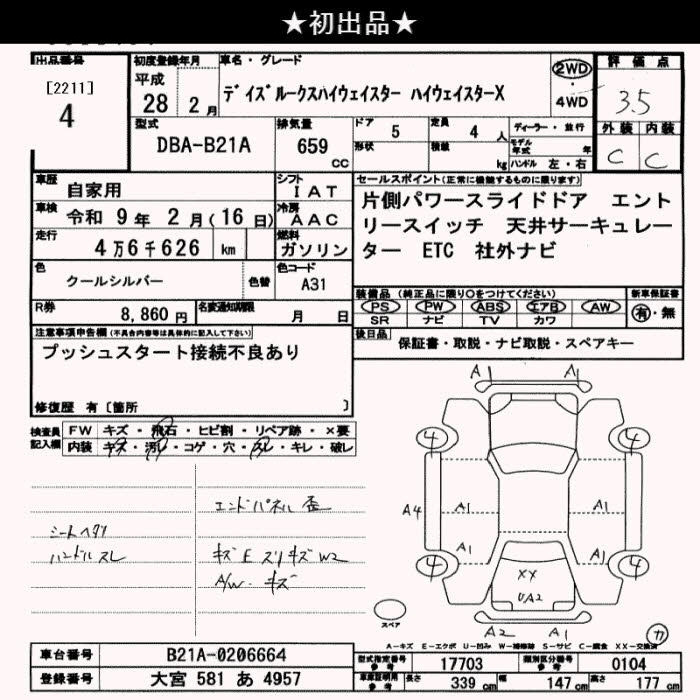 ★初出品★
出品番号
[2211]
4
初度登録年月
平成
28 2月
車名・グレード
デイズルークスハイウェイスター ハイウェイスターX
2WD
4WD
評価点
3.5
外装 内装
C C
型式
DBA-B21A
排気量
659
cc
ドア
5
形状
定員
4 人
積載
kg
ディーラー・並行
モデル年式 年
ハンドル 左・右
車歴
自家用
シフト
IAT
車検
令和 9年 2月(16日)
冷房
AAC
走行
4万6千626 km
燃料
ガソリン
色
クールシルバー
色替
色コード
A31
R券
8,860円
名変通知期限
月 日
セールスポイント(正常に機能するものに限ります)
片側パワースライドドア エント
リースイッチ 天井サーキュレー
ター ETC 社外ナビ
装備品 (純正品に限り○をつけてください)
新車保証書
PS PW ABS エアB AW
SR ナビ TV カワ
有・無
後日品
保証書・取説・ナビ取説・スペアキー
注意事項申告欄(不具合内容等は具体的に記入して下さい)
プッシュスタート接続不良あり
修復歴 有〔箇所 〕
検査員
記入欄
FW キズ・飛石・ヒビ割・リペア跡・×要
内装 キズ・汚レ・コゲ・穴・スレ・キレ・破レ
シートヘタリ
ハンドルスレ
エンドパネル歪
キズEスリキズW2
A/W・キズ
A1 A1
4 4
A4 A1 A1
A1 A1
4 4
XX
UA2
A2 A1
スペア
カ
A-キズ E-エクボ U-凹み W-補修跡 S-サビ C-腐食 XX-交換済
車台番号 B21A-0206664
登録番号 大宮 581 あ 4957
型式指定番号
参考
17703
類別区分番号
参考
0104
車庫証明用
参考
長さ 339 cm 幅 147 cm 高さ 177 cm